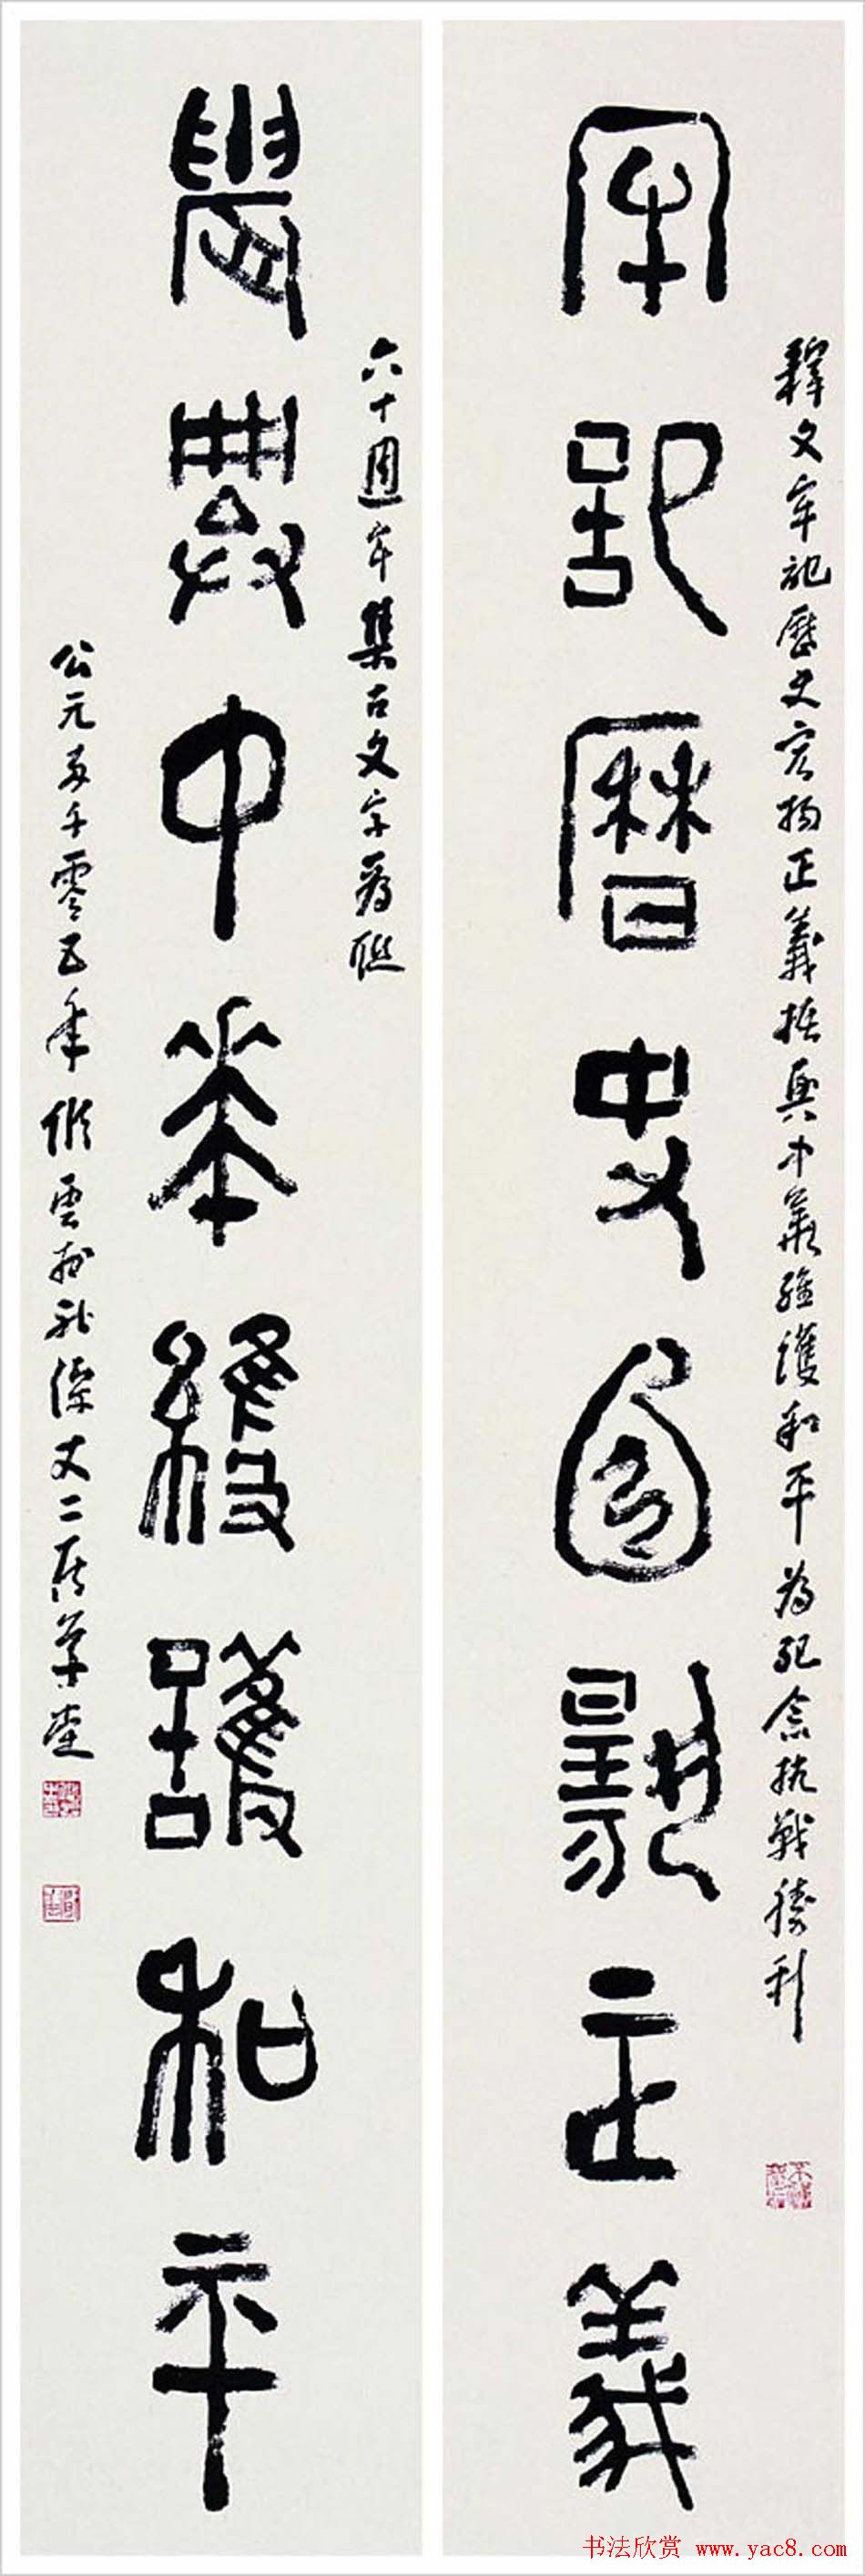 牢記歷史宏揚正義
釋文牢記歷史宏揚正義振興中華維護和平為紀念抗戰勝利
振興中華維護和平
六十週年集古文字為聯
公元二千零五年修雲於龍潭丈二居草堂
书法欣赏 www.yac8.com